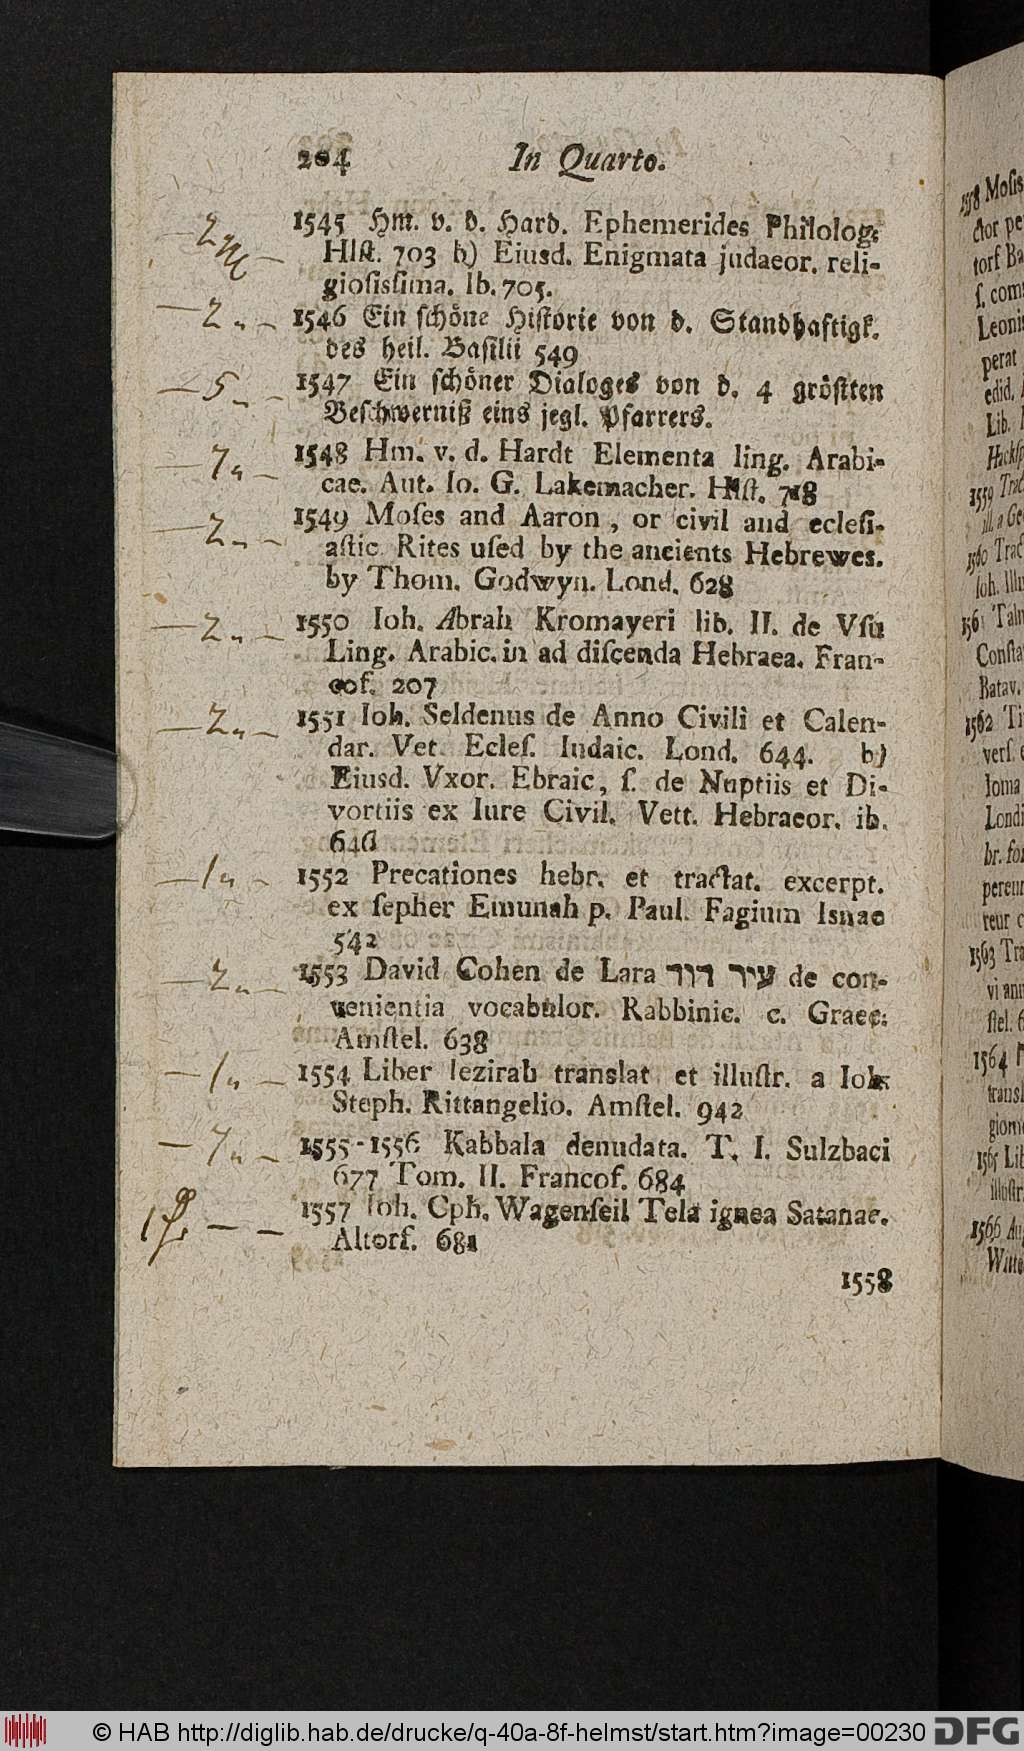 204 In Quarto.
1545 Hm. v. d. Hard. Ephemerides Philolog:
Hlſt. 703 b) Eiusd. Enigmata judaeor. reli-
gioſisſima. Ib. 705.
1546 Ein ſchöne Hiſtorie von d. Standhaftigk.
des heil. Baſilii 549
1547 Ein ſchöner Dialoges von d. 4 gröſten
Beſchwerniß eins jegl. Pfarrers.
1548 Hm. v. d. Hardt Elementa ling. Arabi-
cae. Aut. Io. G. Lakemacher. Hlſt. 718
1549 Moſes and Aaron, or civil and ecleſi-
aſtic Rites uſed by the ancients Hebrewes.
by Thom. Godwyn. Lond. 628
1550 Ioh. Abrah Kromayeri lib. II. de Vſu
Ling. Arabic. in ad diſcenda Hebraea. Fran-
cof. 207
1551 Ioh. Seldenus de Anno Civili et Calen-
dar. Vet. Ecleſ. Iudaic. Lond. 644. b)
Eiusd. Vxor. Ebraic, ſ. de Nuptiis et Di-
vortiis ex Iure Civil. Vett. Hebraeor. ib.
646
1552 Precationes hebr. et tractat. excerpt.
ex ſepher Emunah p. Paul. Fagium Isnae
542
1553 David Cohen de Lara עיר דוד de con-
venientia vocabulor. Rabbinic. c. Graec.
Amſtel. 638
1554 Liber Iezirah translat et illuſtr. a Ioh.
Steph. Rittangelio. Amſtel. 942
1555-1556 Kabbala denudata. T. I. Sulzbaci
677 Tom. II. Francof. 684
1557 Ioh. Cph. Wagenſeil Tela ignea Satanae.
Altorf. 681
1558
— 2 —
— 2 „ —
— 5 „ —
— 7 „ —
— 2 „ —
— 2 „ —
— 2 „ —
— 1 „ —
— 2 „ —
— 1 „ —
— 7 „ —
1558 Moſis
ctor pe
torf Ba
ſ. com
Leonis
perat
edid.
Lib.
Hackſp
1559 Trac
1560 Trac
Ioh. Illu
1561 Talm
Conſta
Batav.
1562 Ti
verſ. e
Ioma
Londi
br. for
pereun
reur c
1563 Tra
vi ann
ſtel. 6
1564
transl
giom
1565 Lib
illuſtr
1566 Au
Witte
© HAB http://diglib.hab.de/drucke/q-40a-8f-helmst/start.htm?image=00230 DFG